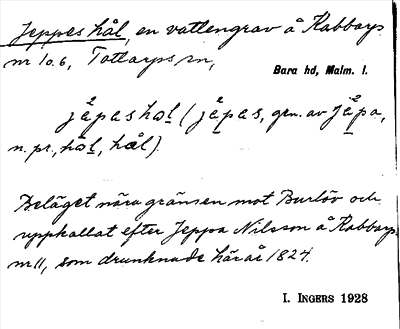 Jeppes hål, en vattengrav å Kabbarp
nr 10.6, Tottarps sn,
Bara hd, Malm. l.
jäpas hol (jäpas, gen. av Jäpa,
n. pr., hol, hål).
Beläget nära gränsen mot Burlöv och
uppkallat efter Jeppa Nilsson å Kabbarp
nr 11, som drunknade här år 1824.
I. INGERS 1928